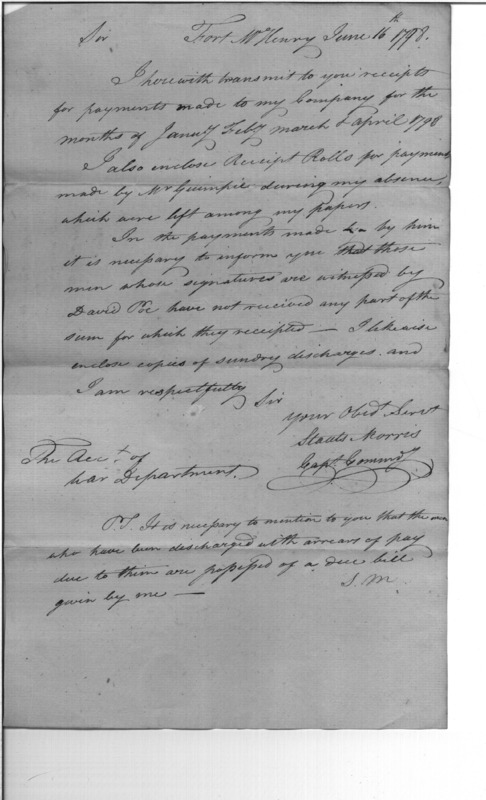 Sir Fort McHenry June 16th 1798.
I herewith transmit to you receipts
for payments made to my Company for the
months of Janu'y Feb'y march & april 1798
I also enclose Receipt Rolls for payments
made by Mr Guimpie during my absence,
which were left among my papers.
In the payments made by him
it is necessary to inform you that those
men whose signatures are witnessed by
David Poe have not received any part of the
sum for which they receipted — I likewise
enclose copies of sundry discharges. and
I am respectfully Sir
Your Obed't Serv't
Staats Morris
Capt. Commd'g
The Acc't. of
War Department.
P.S. It is necessary to mention to you that the men
who have been discharged with arrears of pay
due to them are possessed of a due bill
given by me —
S. M